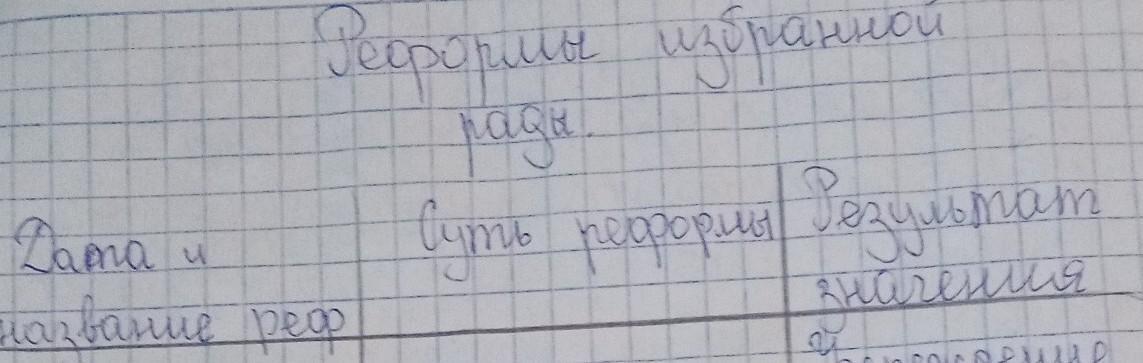 Реформы избранной
рады.
Дата и
название реф
Суть реформы
Результат
значения